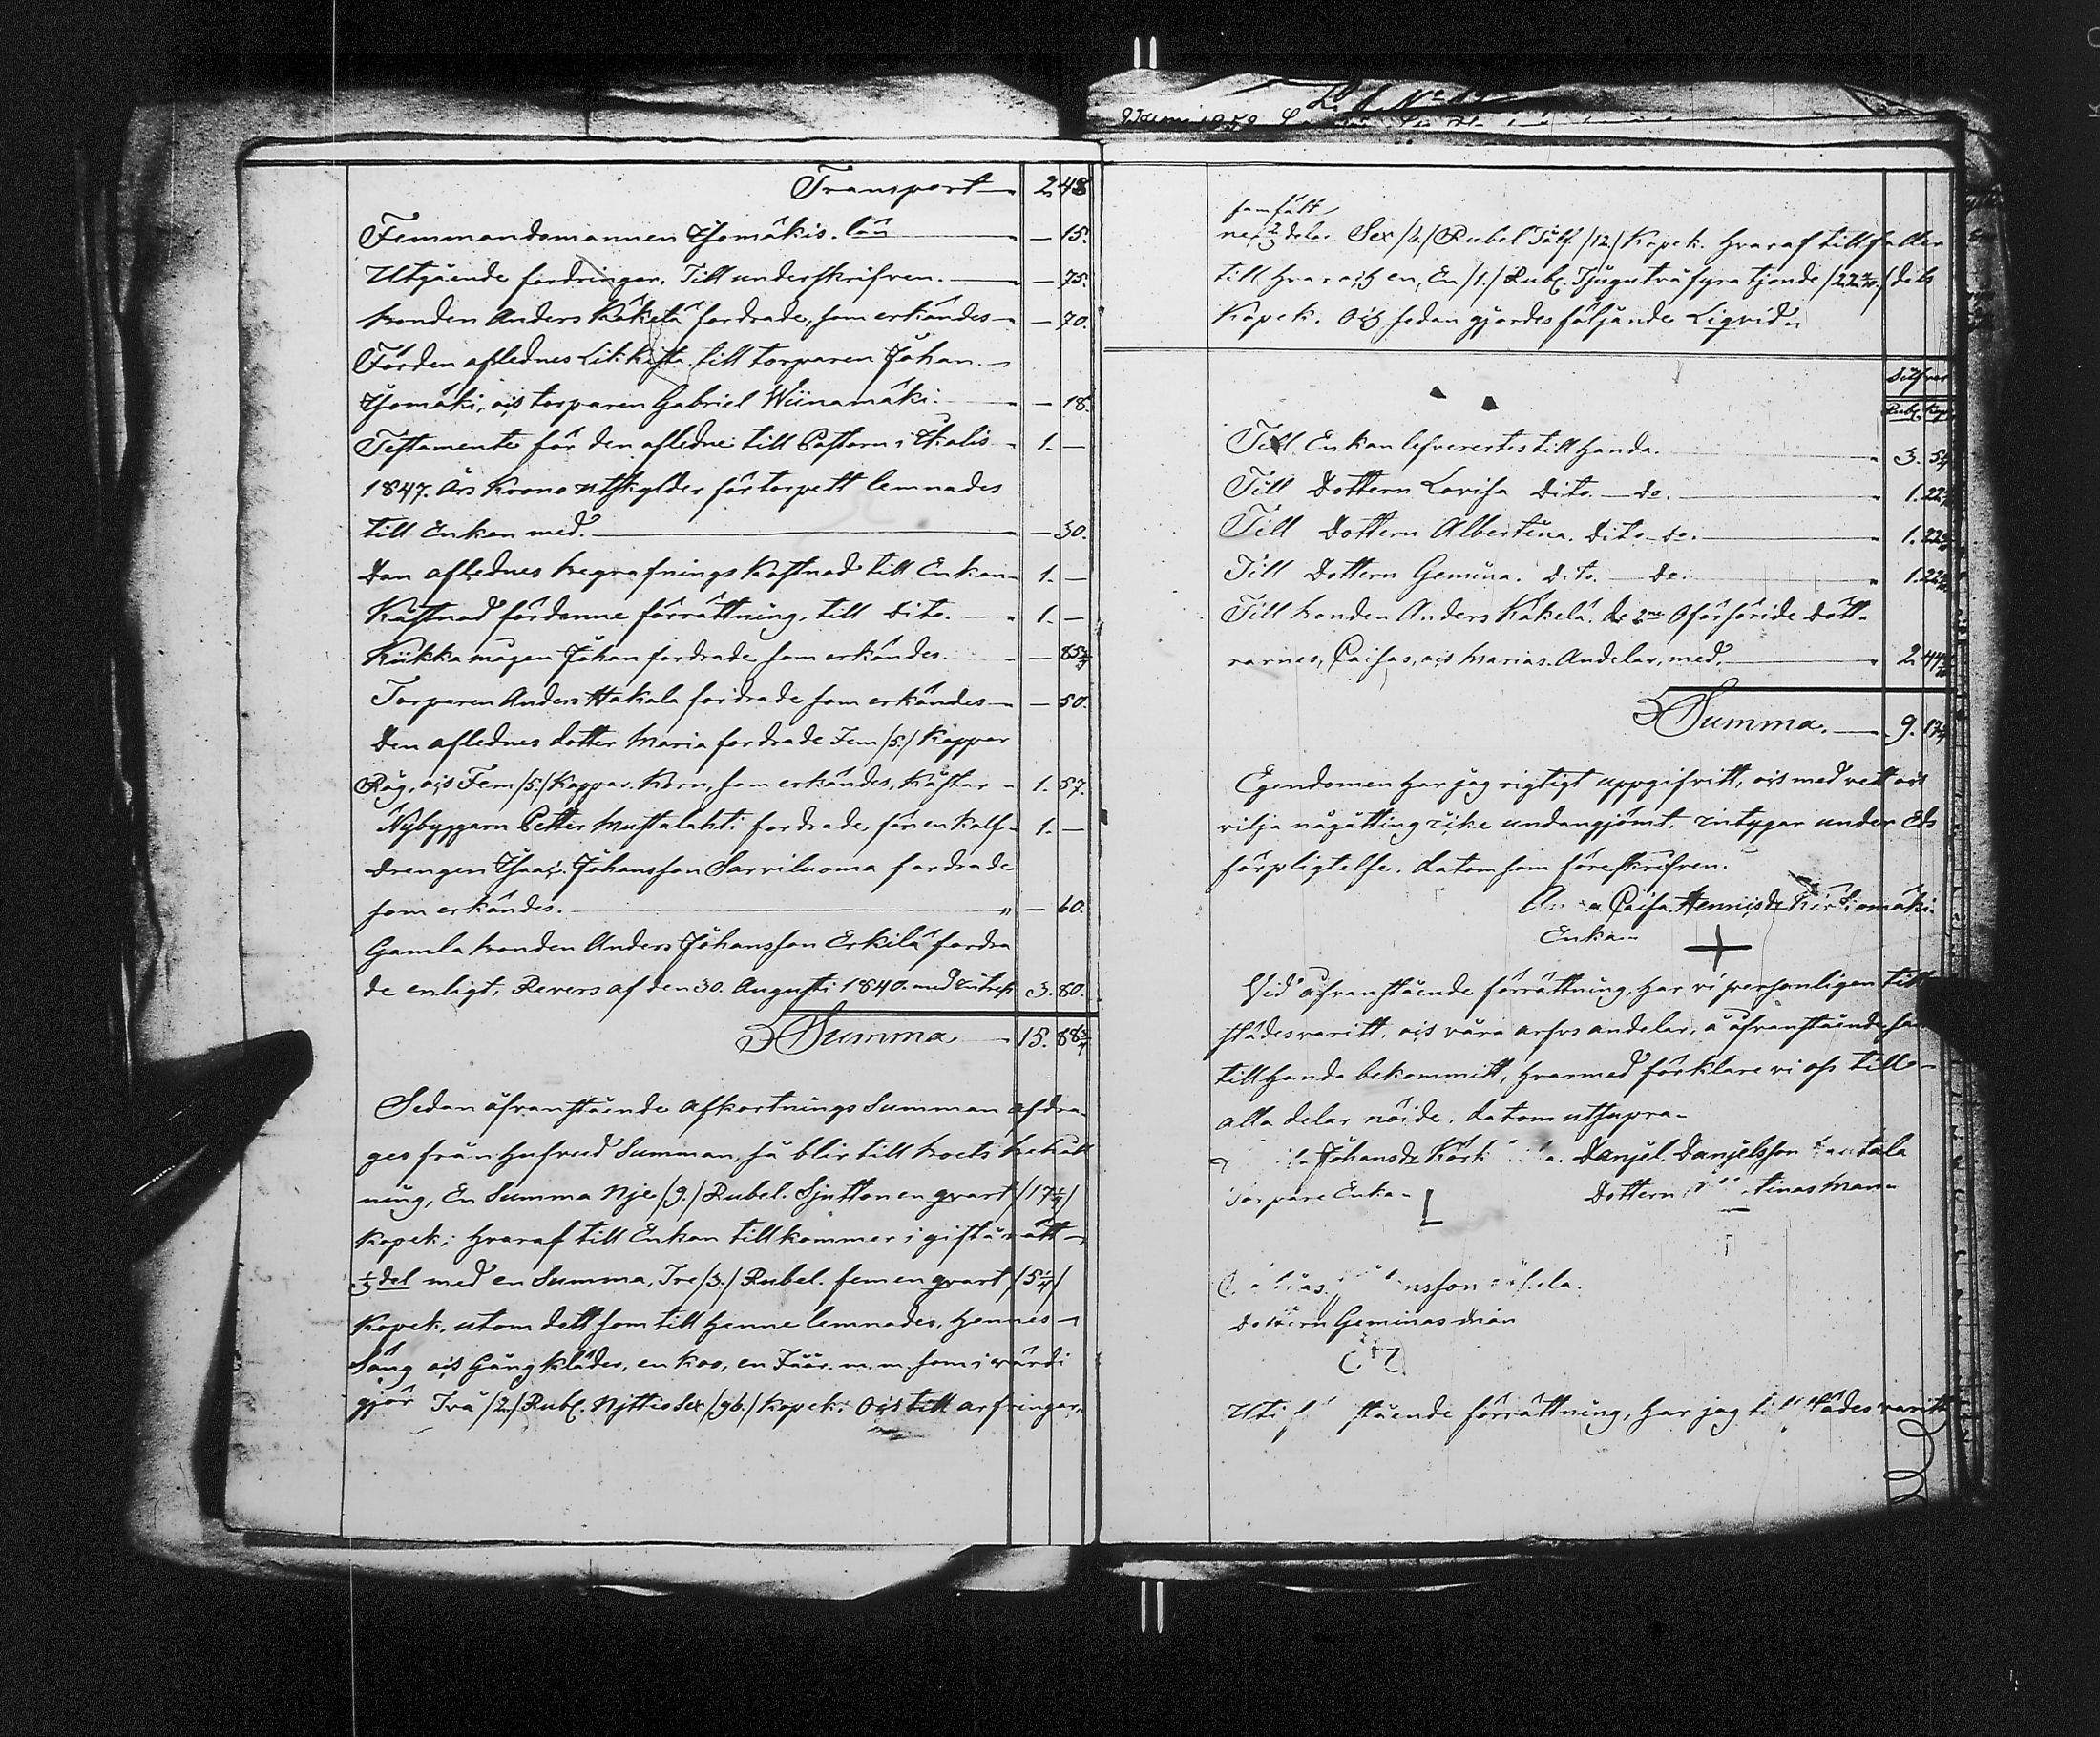 Transport 2 48
Femmandomannen Isomäkis. lön — 15.
Utgående fordringar, Till underskrifven. — 75.
bonden Anders Käkelä fordrade, som erkändes — 70.
För den aflednes Lik kista till torparen Johan
Isomäki, och torparen Gabriel Wiinamäki. — 18.
Testamente för den afledne till Pastorn i Ikalis 1. —
1847. Års krono utskylder för torpett lemnades
till Enkan med. — 30.
Den aflednes begrafnings kostnad till Enkan 1. —
Kostnad för denne förrättning, till Dito. 1. —
Kiikka mågen Johan fordrade som erkändes. — 85 3/4
Torparen Anders Hakala fordrade som erkändes — 50.
Den aflednes dotter Maria fordrade Fem /5./ kappar
Råg, och Fem /5./ kappar Korn, som erkändes, Kåstar 1. 57.
Nybyggarn Petter Mustalahti fordrade, för en kalf 1. —
Drengen Isaac Johansson Sarviluoma fordrade
som erkändes. — 60.
Gamla bonden Anders Johansson Erkilä fordra
de enligt, Revers af den 30. Augusti 1840. med 3. 80.
Summa 15. 88 3/4
Sedan åfvanstående afkortnings Summan afdra
ges från hufvud Summan, så blir till boets behåll
ning, En Summa Nje /9./ Rubel. Sjutton en qvart /17 1/4/
Kopek; hvaraf till Enkan tillkommer i giftorätt
1/3 del med en Summa, Tre /3./ Rubel. fem en qvart /5 1/4/
Kopek, utom dett som till henne lemnades, hennes
Säng och Gång kläder, en koo, en Fåår. m. m. som i värdi
gjör Två /2./ Rubl. Njttio Sex /96./ kopek: Och till arfvingar
samfält
ne, 2/3 delar Sex /6./ Rubel Tolf /12./ Kopek. hvaraf tillfaller
till hvar och en, En /1./ Rubl. Tjugutvå fyra tjonde /22 4/10./ dels
Kopek. Och sedan gjordes följande Liqvid
Silfver
Rubl. Kop
Till Enkan lefverertes till handa. 3. 5 1/4
Till Dottern Lovisa Dito. — do. 1. 22 4/10
Till Dottern Albertina. Dito do. 1. 22 4/10
Till Dottern Gemina. Dito. — do. 1. 22 4/10
Till bonden Anders Käkelä, de 2ne Oförsöride Dött
rarnes, Caisas, och Marias Andelar, med. 2. 44
Summa. 9. 17 1/4
Egendomen har jag rigtigt uppgifvitt, och med vett och
vilja någåtting icke undangjömt, intygar under Eds
förpligtelse. Datom som föreskrefven.
Caisa Henricsdr
Enka
Vid åfvanstående förrättning, har vi personligen till
städes varitt, och våra arfvs andelar, å åfvanstående
till handa bekommitt, hvarmed förklare vi oss till
alla delar nöide. Datom utsupra
Johansdr Danjel Danjelsson
Torpare Enka Dottern tinas Man
nsson
Dottern Geminas Män
stående förrättning, har jag till städes varitt